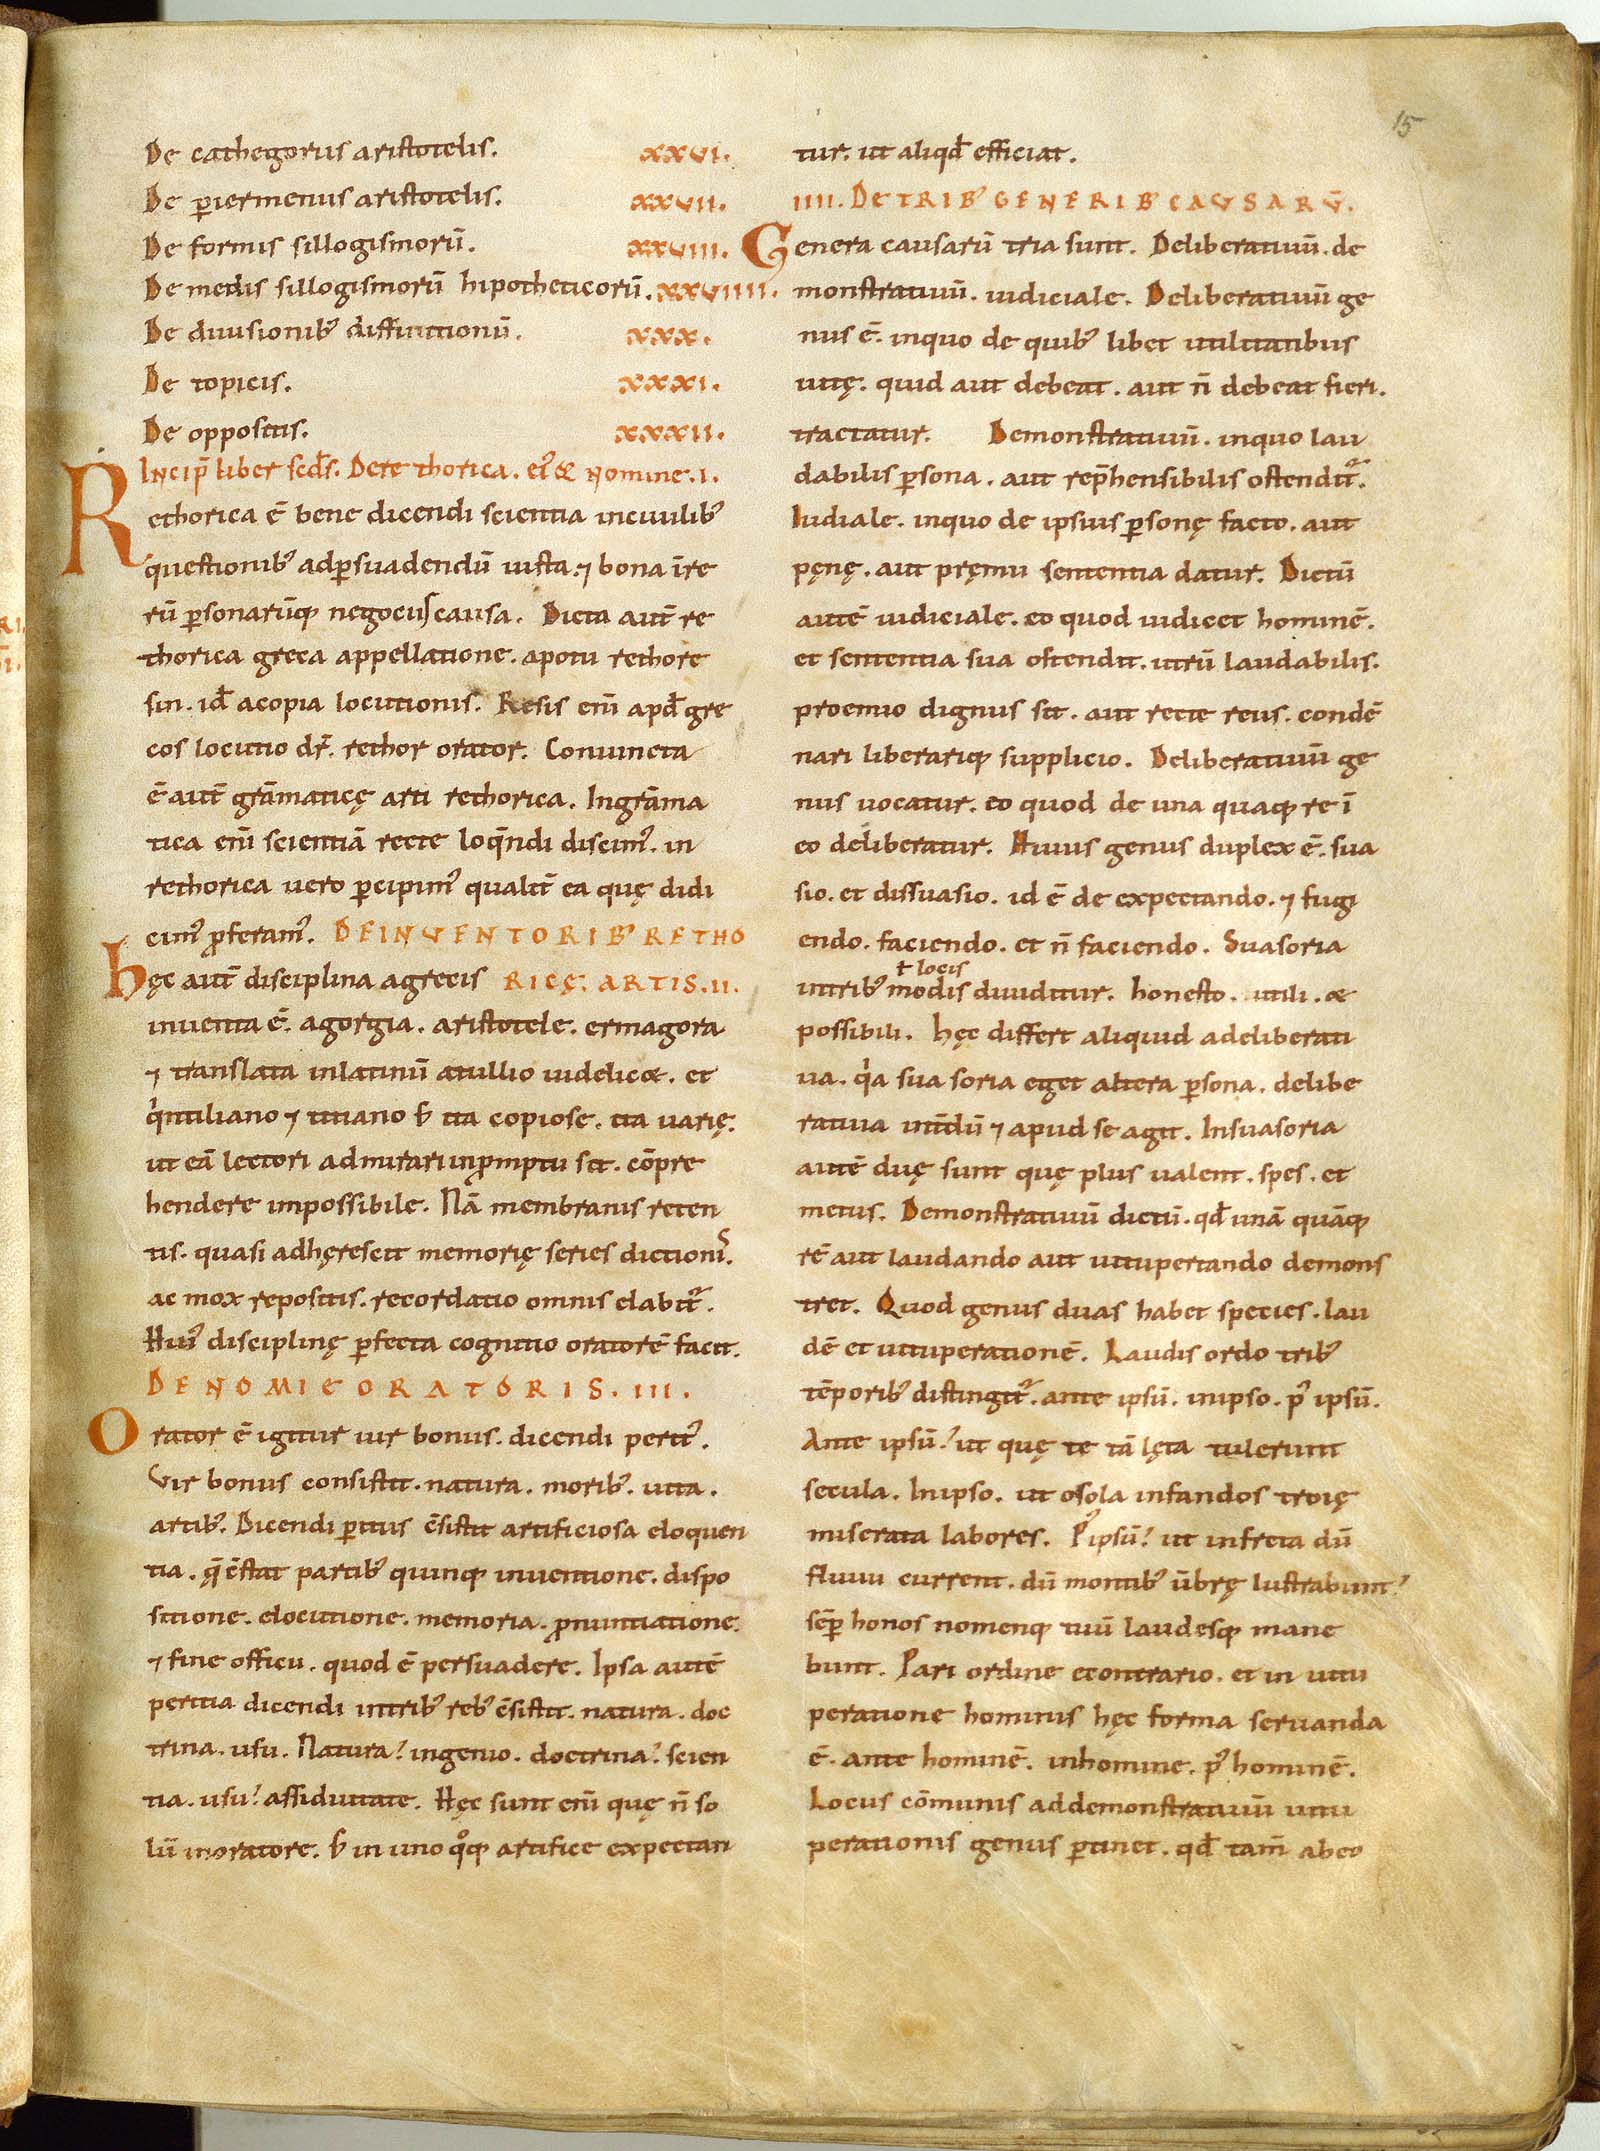 15
De cathegoriis aristotelis. xxvi.
De ꝑiermeniis aristotelis. xxvii.
De formis sillogismorū. xxviii.
De mediis sillogismorū hipotheticorū. xxviiii.
De diuisionibꝰ diffinitionū. xxx.
De topicis. xxxi.
De oppositis. xxxii.
Incip̄ liber scđs. De rethorica. eiꝰ & nomine. i.
Rethorica ē bene dicendi scientia inciuilibꝰ
questionibꝰ adꝑsuadendū iusta. ⁊ bona īre
rū ꝑsonarūq; negociis causa. Dicta aut̄ re
thorica greca appellatione. apotu rethore
sin. id̄ acopia locutionis. Resis eni̅ apđ gre
cos locutio dr̄. rethor orator. Coniuncta
ē aut̄ grāmaticę arti rethorica. Ingrāma
tica eni̅ scientiā recte loq̄ndi discimꝰ. in
rethorica uero ꝑcipimꝰ qualit̄ ea quę didi
cimꝰ ꝓferamꝰ. DEINVENTORIBꝰ RETHO
hęc aut̄ disciplina agrecis RICĘ. ARTIS. II.
inuenta ē. agorgia. aristotele. ermagora
⁊ translata inlatinū atullio uidelic&. et
q̇ntiliano ⁊ titiano ẜ ita copiose. ita uarię.
ut eā lectori admirari inꝓmptu sit. cōpre
hendere impossibile. Nā membranis reten
tis. quasi adhęrescit memorię series dictionis.
ac mox repositis. recordatio omnis elabit̃.
Huiꝰ disciplinę ꝑfecta cognitio oratorē facit.
DENOMIE ORATORIS. III.
Orator ē igitur uir bonus. dicendi peritꝰ.
Vir bonus consistit. natura. moribꝰ. uita.
artibꝰ. Dicendi ꝑitus c̄sistit artificiosa eloquen
tia. q̄ c̄stat partibꝰ quinq; inuentione. dispo
sitione. elocutione. memoria. ꝓnuntiatione.
⁊ fine officii. quod ē persuadere. Ipsa autē
peritia dicendi intribꝰ rebꝰ c̄sistit. natura. doc
trina. usu. Natura? ingenio. doctrina? scien
tia. usu? assiduitate. Hęc sunt eni̅ quę n̄ so
lū inoratore. ẜ in uno q̊q; artifice expectan
tur. ut aliqđ efficiat.
IIII. DETRIBꝰ GENERIBꝰ CAVSARV̄.
Genera causarū tria sunt. Deliberatiuū. de
monstratiuū. iudiciale. Deliberatiuū ge
nus ē. inquo de quibꝰ libet utilitatibus
uitę. quid aut debeat. aut n̄ debeat fieri.
tractatur. Demonstratiuū. inquo lau
dabilis ꝑsona. aut rep̄hensibilis ostendit̃.
Iudiale. inquo de ipsius ꝑsonę facto. aut
pęnę. aut pręmii sententia datur. Dictū
autē iudiciale. eo quod iudicet hominē.
et sententia sua ostendit. utrū laudabilis.
proemio dignus sit. aut recte reus. condē
nari liberariq; supplicio. Deliberatiuū ge
nus uocatur. eo quod de una quaq; re ī
eo deliberatur. Huius genus duplex ē. sua
sio. et dissuasio. id ē de expectando. ⁊ fugi
endo. faciendo. et n̄ faciendo. Suasoria
ꝉ locis
intribꝰ modis diuiditur. honesto. utili. &
possibili. hęc differt aliquid adeliberati
ua. q̇a sua soria eget altera ꝑsona. delibe
ratiua int̄dū ⁊ apud se agit. Insuasoria
autē duę sunt quę plus ualent. spes. et
metus. Demonstratiuū dictū. qđ unā quāq;
rē aut laudando aut uitupertando demons
tret. Quod genus duas habet species. lau
dē et uituperationē. Laudis ordo tribꝰ
tēporibꝰ distingit̃. ante ipsū. inipso. pꝰ ipsū.
Ante ipsū? ut quę te tā lęta tulerunt
secula. Inipso. ut osola infandos troię
miserata labores. Pꝰ ipsū? ut infreta dū
fluuii current. dū montibꝰ ūbrę lustrabunt?
sēꝑ honos nomenq; tuū laudesq; mane
bunt. Pari ordine econtrario. et in uitu
peratione hominis hęc forma seruanda
ē. ante hominē. inhomine. pꝰ hominē.
Locus cōmunis addemonstratiuū uitu
perationis genus ꝑtinet. qđ tam̄ abeo